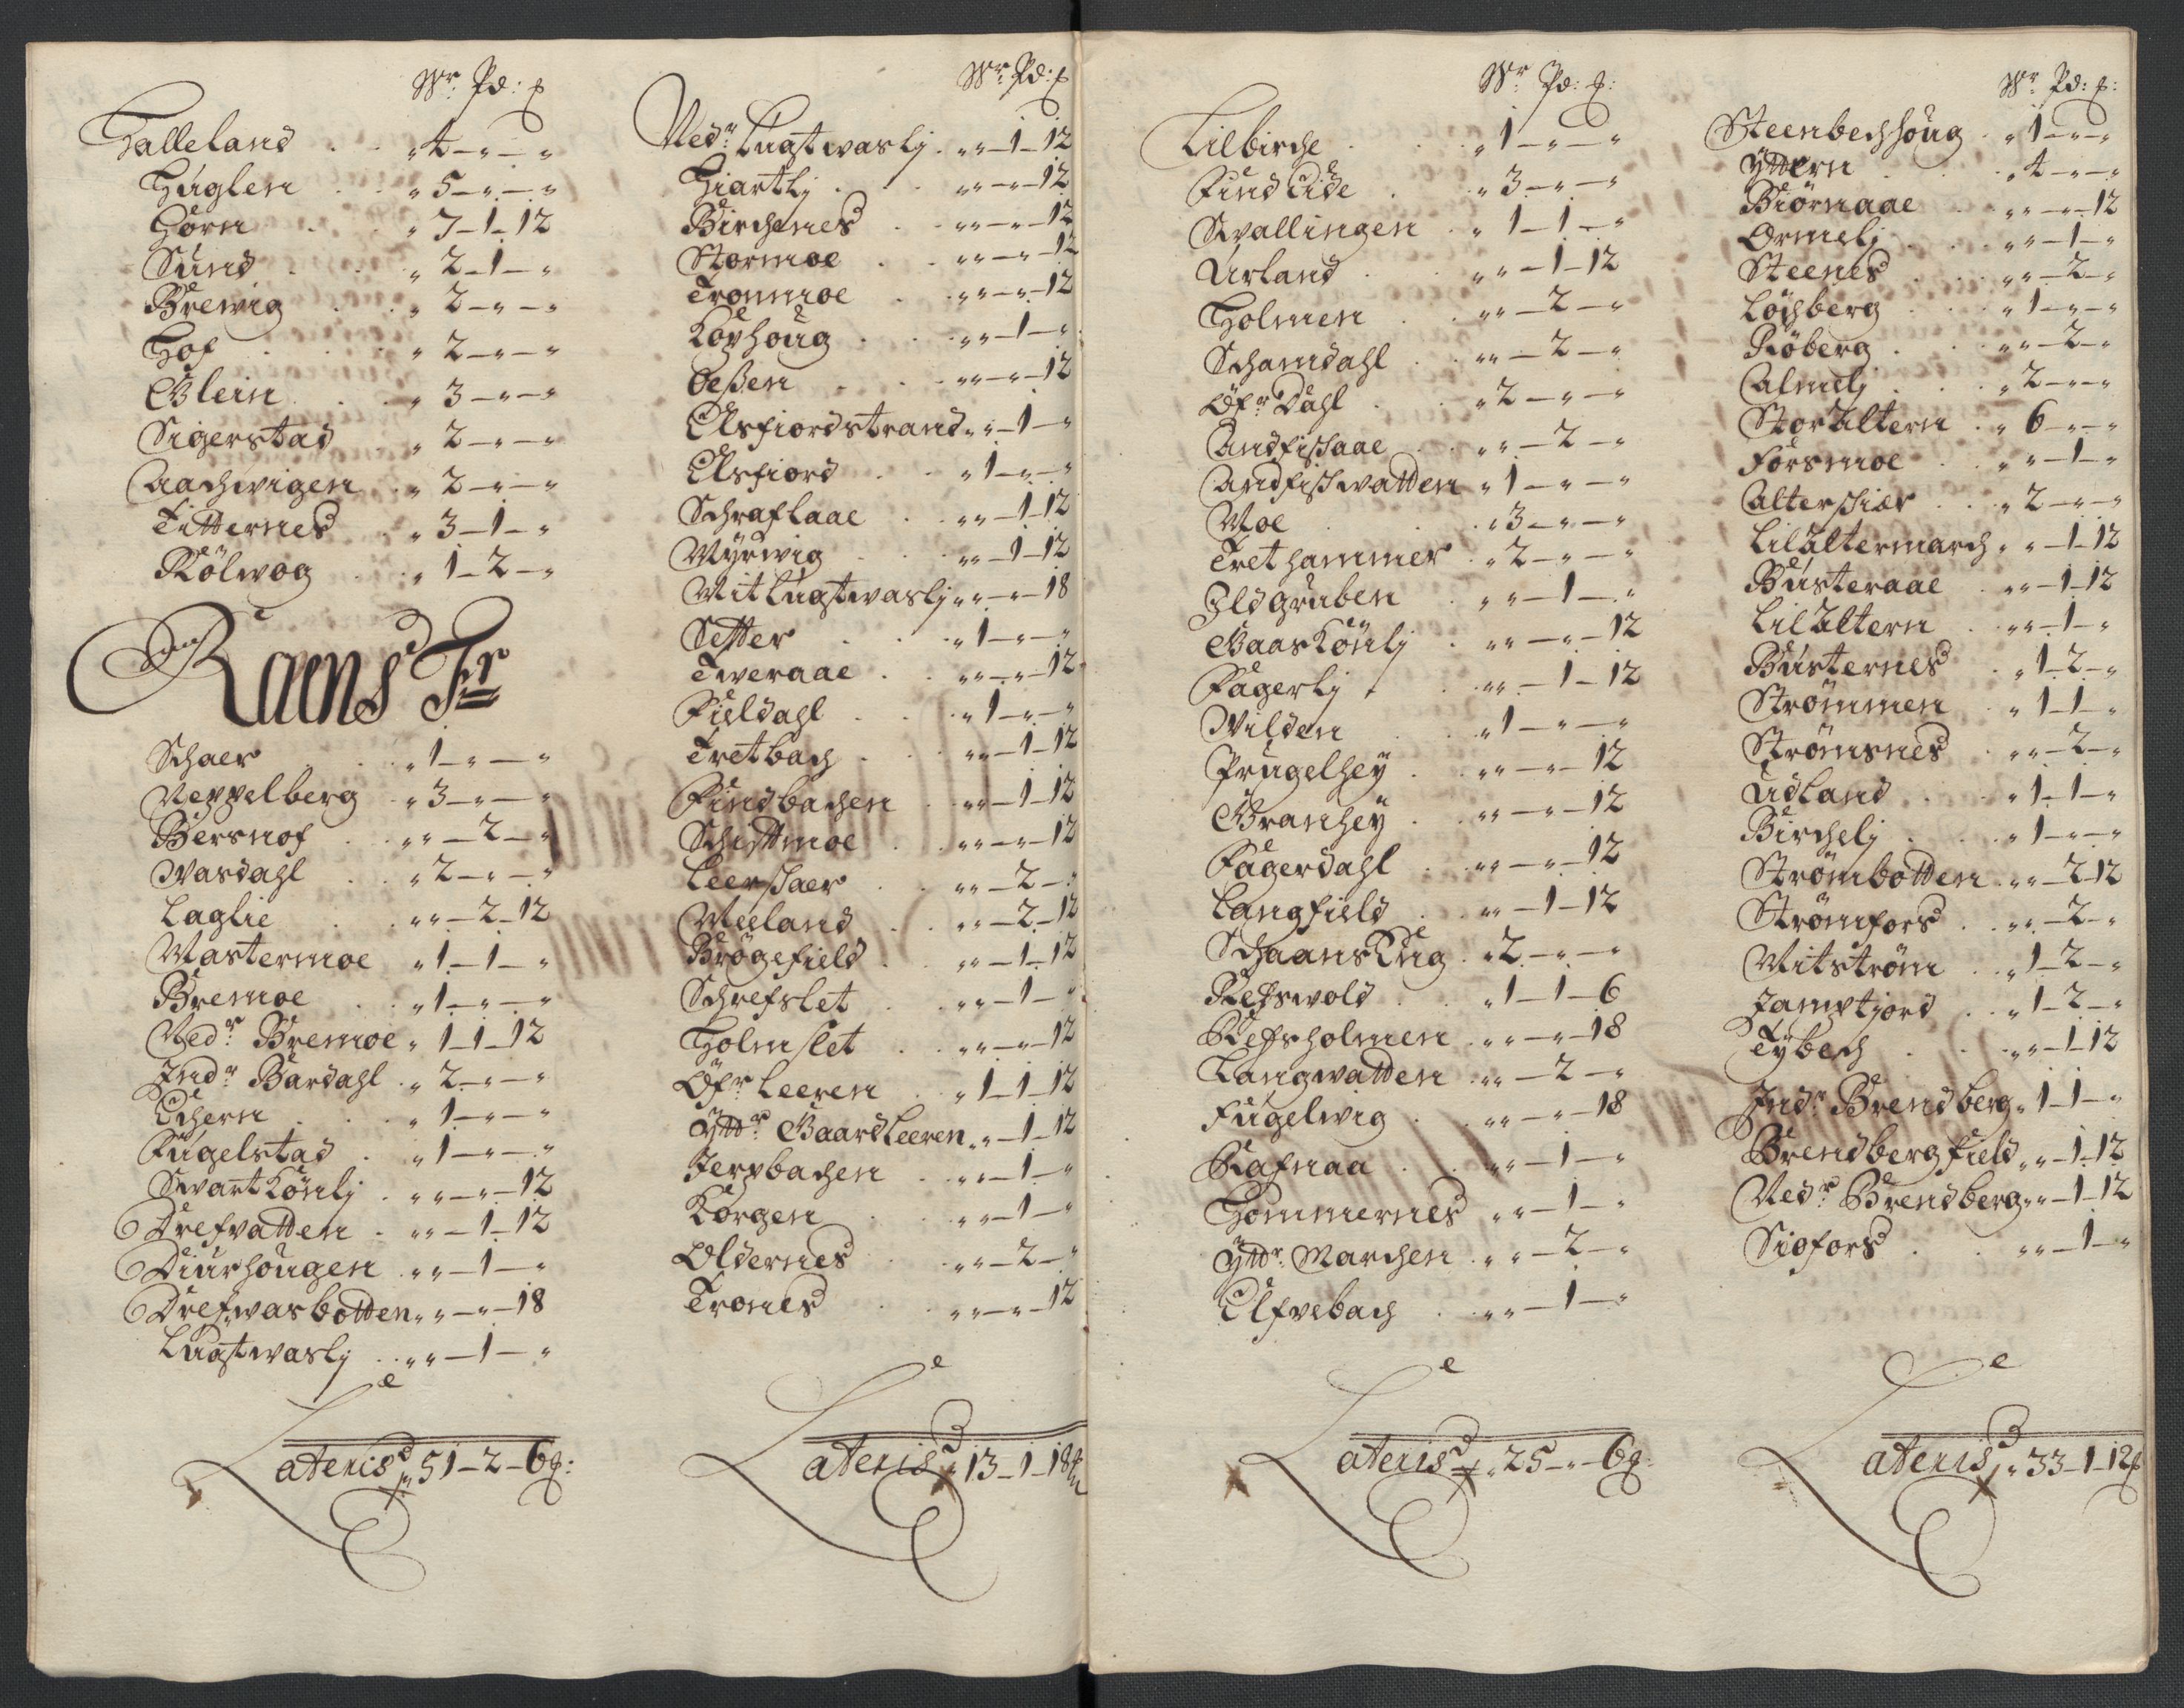 Wr: Pd: ℔
Halleland . . „ 4 – „ – „
Huglen . . „ 5 – „ – „
Horn . . „ 7 – 1 – 12
Sund . . „ 2 – 1 – „
Brewig . . „ 2 – „ – „
Hof . . „ 2 – „ – „
Glein . . „ 3 – „ – „
Sigerstad . „ 2 – „ – „
Aachwigen . „ 2 – „ – „
Fitternes . „ 3 – 1 – „
Kölwog . . „ 1 – 2 – „
Raens Fr
Schaer . . „ 1 – „ – „
Neppelberg . „ 3 – „ – „
Bersnof . „ „ – 2 – „
Wasdahl . „ 2 – „ – „
Laglie . „ „ – 2 – 12
Mastermoe „ 1 – 1 – „
Bremoe . . „ 1 – „ – „
Nedr Bremoe „ 1 – 1 – 12
Indr Bardahl . „ 2 – „ – „
Echern . . „ 1 – „ – „
Fugelstad . „ 1 – „ – „
Swartkönlj . „ „ – „ – 12
Drefvatten . „ „ – 1 – 12
Diurhougen . „ „ – 1 – „
Drefwasbotten „ „ – „ – 18
Lugtwaslj . . „ „ – 1 – „
Lateris „ 51 – 2 – 6 ℔:
Wr: Pd: ℔
Nedr: Lugtwaslj . „ „ – 1 – 12
Hiartlj . . „ „ – „ – 12
Birchenes . „ „ – „ – 12
Stormoe . . „ „ – „ – 12
Tronmoe . „ „ – „ – 12
Kovhoug . . „ „ – 1 – „
Leßen . . „ „ – „ – 12
Elsfiordstrand „ „ – 1 – „
Elsfiord . „ 1 – „ – „
Schraflaae . „ „ – 1 – 12
Myrwig . . „ „ – 1 – 12
Mitlugtwaslj „ „ – „ – 18
Setter . . „ 1 – „ – „
Tweraae . . „ „ – „ – 12
Fieldahl . . „ 1 – „ – „
Tretbach . . „ „ – 1 – 12
Findbachen . „ „ – 1 – 12
Schittmoe . „ „ – „ – 12
Leerschaer . „ „ – 2 – „
Meeland . . „ „ – 2 – 12
Brögefield . „ „ – 1 – 12
Schrefslet . „ „ – 1 – „
Holmslet . „ „ – „ – 12
Öfr Leeren . „ 1 – 1 – 12
Yttr: Gaardleeren „ „ – 1 – 12
Jervbachen . „ „ – 1 – „
Korgen . „ „ – 1 – „
Oldernes . „ „ – 2 – „
Trones . „ „ – „ – 12
Lateris „ 13 – 1 – 18 ℔
Wr Pd: ℔:
Lilbirche . . „ 1 – „ – „
Find Lide . „ 3 – „ – „
Svallingen . „ 1 – 1 – „
Urland . . „ „ – 1 – 12
Holmen . „ „ – 2 – „
Schamdahl . „ „ – 2 – „
Öfr Dahl . „ 2 – „ – „
Andfißaae . „ „ – 2 – „
Andfißwatten „ 1 – „ – „
Moe . . „ 3 – „ – „
Trethammer . „ 2 – „ – „
Ildgruben . „ „ – 1 – „
Gaaskönlj . „ „ – „ – 12
Fagerlj . „ „ – 1 – 12
Wilden . „ 1 – „ – „
Prugelhey . „ „ – „ – 12
Granhey . „ „ – „ – 12
Fagerdahl . „ „ – „ – 12
Langfield . „ „ – 1 – 12
Schaanseng . „ 2 – „ – „
Refswold . „ 1 – 1 – 6
Refsholmen . „ „ – „ – 18
Langwatten . „ „ – 2 – „
Fugelwig . „ „ – „ – 18
Rafnaa . . „ „ – 1 – „
Hommernes „ „ – 1 – „
Yttr: Marchen . „ „ – 2 – „
Elfvebach . „ „ – 1 – „
Lateris „ 25 – „ – 6 ℔
Wr Pd: ℔:
Steenbechhoug . „ 1 – „ – „
Yttern . „ 4 – „ – „
Biörnaae . „ „ – „ – 12
Ormelj . „ „ – 1 – „
Steenes . „ „ – 2 – „
Löchberg . „ 1 – „ – „
Röberg . „ „ – 2 – „
Almelj . „ 2 – „ – „
StorAltern . „ 6 – „ – „
Forsmoe . „ „ – 1 – „
Alterschiær . „ 2 – „ – „
Lilaltermarch „ „ – 1 – 12
Busteraae . „ „ – 1 – 12
LilAltern . „ „ – 1 – „
Busternes . „ 1 – 2 – „
Strömmen . „ 1 – 1 – „
Strömsnes . „ „ – 2 – „
Udland . . „ 1 – 1 – „
Birchelj . „ 1 – „ – „
Strömbotten . „ „ – 2 – 12
Strömfors . „ „ – 2 – „
Mitström . „ 1 – 2 – „
Jamptjord . „ 1 – 2 – „
Tybech . „ „ – 1 – 12
Indr Brendberg „ 1 – 1 – „
Brendbergfield „ „ – 1 – 12
Nedr Brendberg „ „ – 1 – 12
Siofors . . „ „ – 1 – „
Lateris „ 33 – 1 – 12 ℔